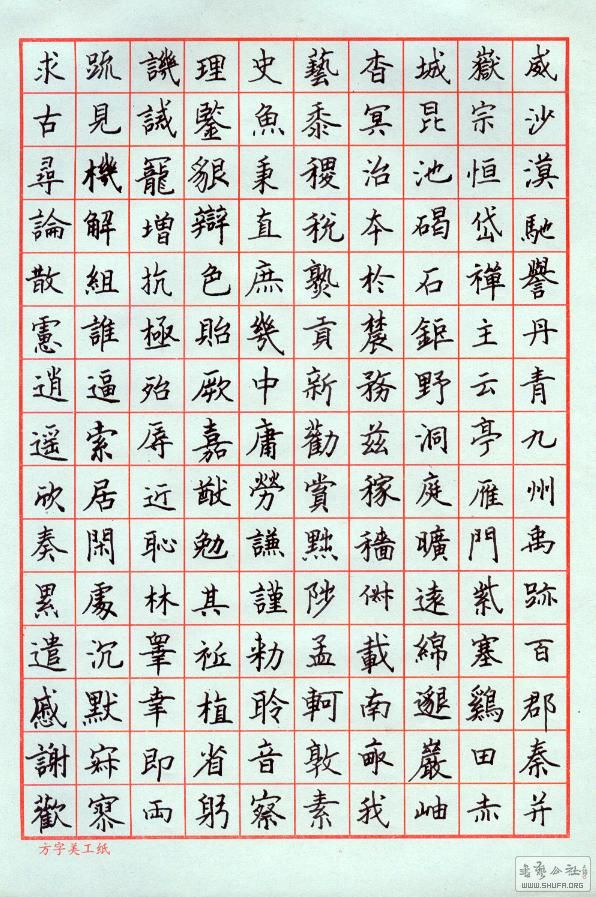 威沙漠馳譽丹青九州禹跡百郡秦并
嶽宗恒岱禪主云亭雁門紫塞鷄田赤
城昆池碣石鉅野洞庭曠遠綿邈巖岫
杳冥治本於農務兹稼穡俶載南畝我
藝黍稷稅熟貢新勸賞黜陟孟軻敦素
史魚秉直庶幾中庸勞謙謹勅聆音察
理鑒貌辯色貽厥嘉猷勉其祗植省躬
譏誡寵增抗極殆辱近恥林皋幸即兩
疏見機解組誰逼索居閑處沉默寂寥
求古尋論散慮逍遥欣奏累遣慼謝歡
方字美工纸
书艺公社
WWW.SHUFA.ORG